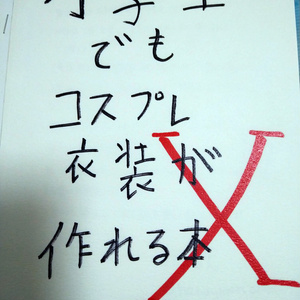 小学生
でも
コスプレ
衣装が
作れる本